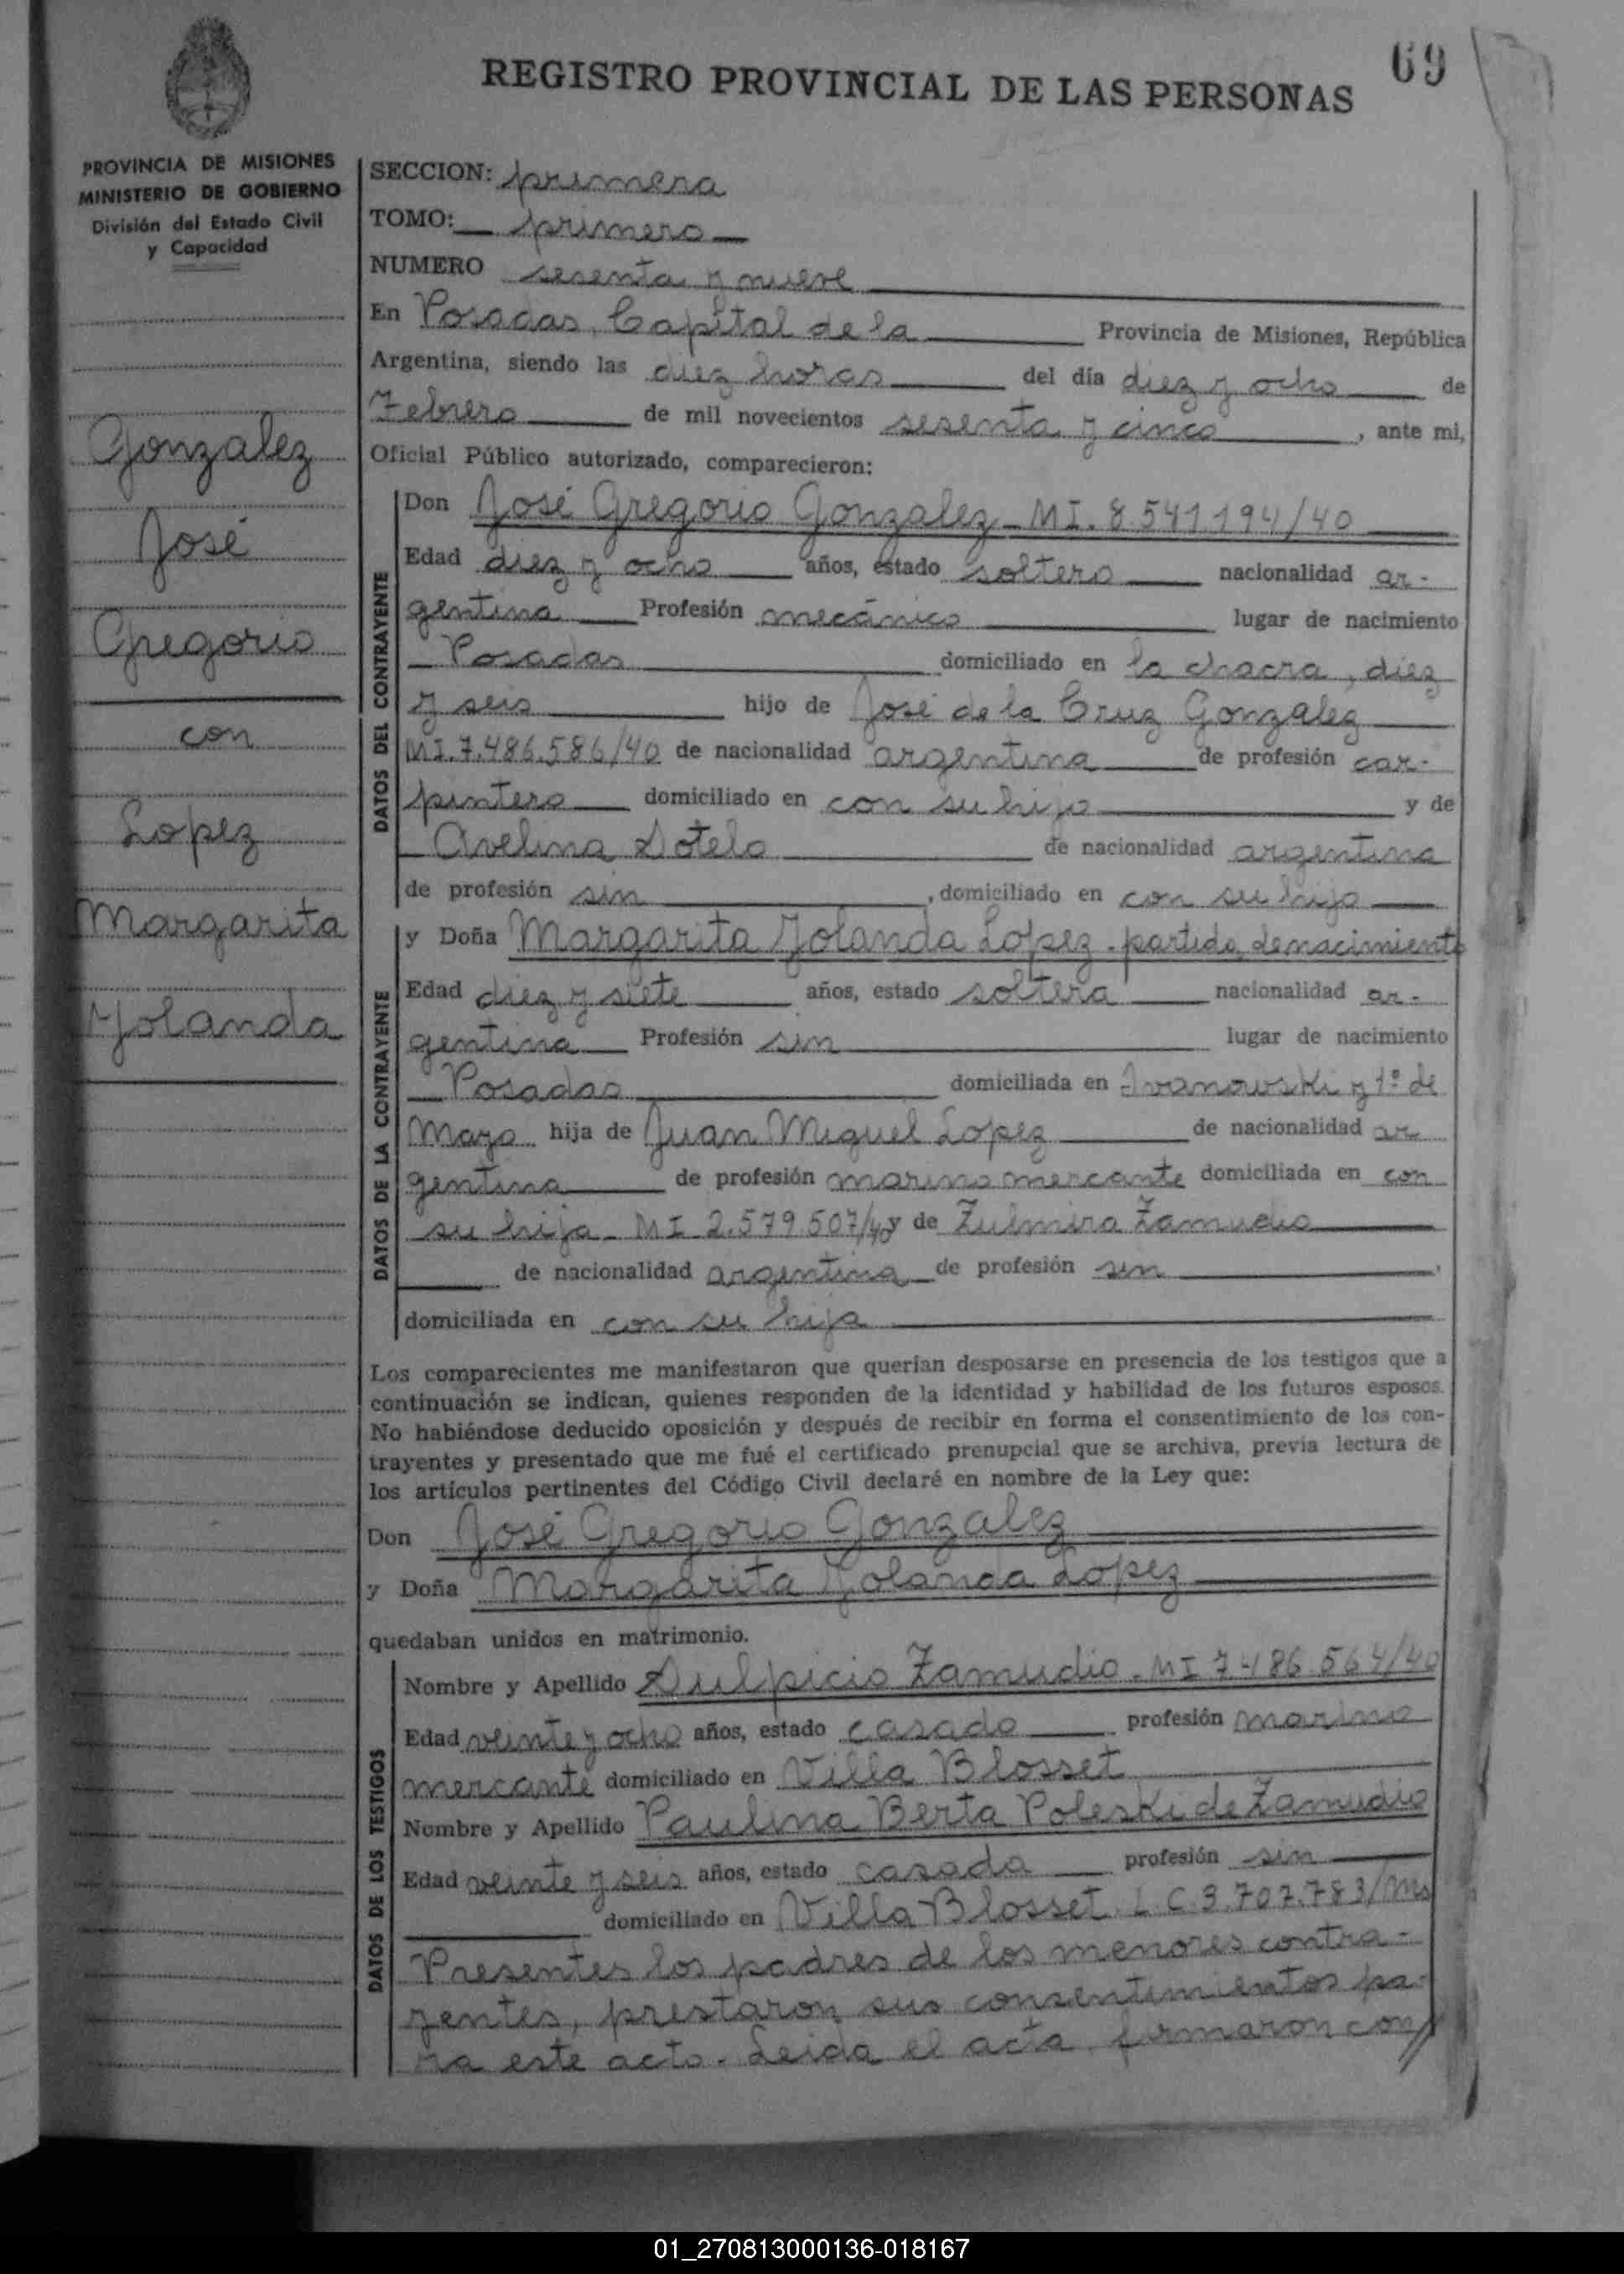 69
REGISTRO PROVINCIAL DE LAS PERSONAS
PROVINCIA DE MISIONES
MINISTERIO DE GOBIERNO
División del Estado Civil
y Capacidad
Gonzalez
José
Gregorio
con
Lopez
Margarita
Yolanda
SECCION: primera
TOMO: primero
NUMERO sesenta y nueve
En Posadas, Capital de la Provincia de Misiones, República
Argentina, siendo las diez horas del día diez y ocho de
Febrero de mil novecientos sesenta y cinco, ante mi,
Oficial Público autorizado, comparecieron:
DATOS DEL CONTRAYENTE
Don José Gregorio Gonzalez - MI. 8.541.194/40
Edad diez y ocho años, estado soltero nacionalidad ar-
gentina Profesión mecánico lugar de nacimiento
Posadas domiciliado en la chacra, diez
y seis hijo de José de la Cruz Gonzalez
MI.7.486.586/40 de nacionalidad argentina de profesión car-
pintero domiciliado en con su hijo y de
Avelina Sotelo de nacionalidad argentina
de profesión sin, domiciliado en con su hijo
DATOS DE LA CONTRAYENTE
y Doña Margarita Yolanda Lopez - partida de nacimiento
Edad diez y siete años, estado soltera nacionalidad ar-
gentina Profesión sin lugar de nacimiento
Posadas domiciliada en Ivanowski y 1º de
Mayo hija de Juan Miguel Lopez de nacionalidad ar
gentina de profesión marino mercante domiciliada en con
su hija - MI 2.579.507/40 y de Zulmira Zamudio
de nacionalidad argentina de profesión sin,
domiciliada en con su hija
Los comparecientes me manifestaron que querían desposarse en presencia de los testigos que a
continuación se indican, quienes responden de la identidad y habilidad de los futuros esposos.
No habiéndose deducido oposición y después de recibir en forma el consentimiento de los con-
trayentes y presentado que me fué el certificado prenupcial que se archiva, previa lectura de
los artículos pertinentes del Código Civil declaré en nombre de la Ley que:
Don José Gregorio Gonzalez
y Doña Margarita Yolanda Lopez
quedaban unidos en matrimonio.
DATOS DE LOS TESTIGOS
Nombre y Apellido Sulpicio Zamudio - MI 7.486.564/40
Edad veinte y ocho años, estado casado profesión marino
mercante domiciliado en Villa Blosset
Nombre y Apellido Paulina Berta Poleski de Zamudio
Edad veinte y seis años, estado casada profesión sin
domiciliado en Villa Blosset L.C.3.707.783/Ms
Presentes los padres de los menores contra-
yentes, prestaron sus consentimientos pa-
ra este acto. Leida el acta, firmaron con//
01_270813000136-018167